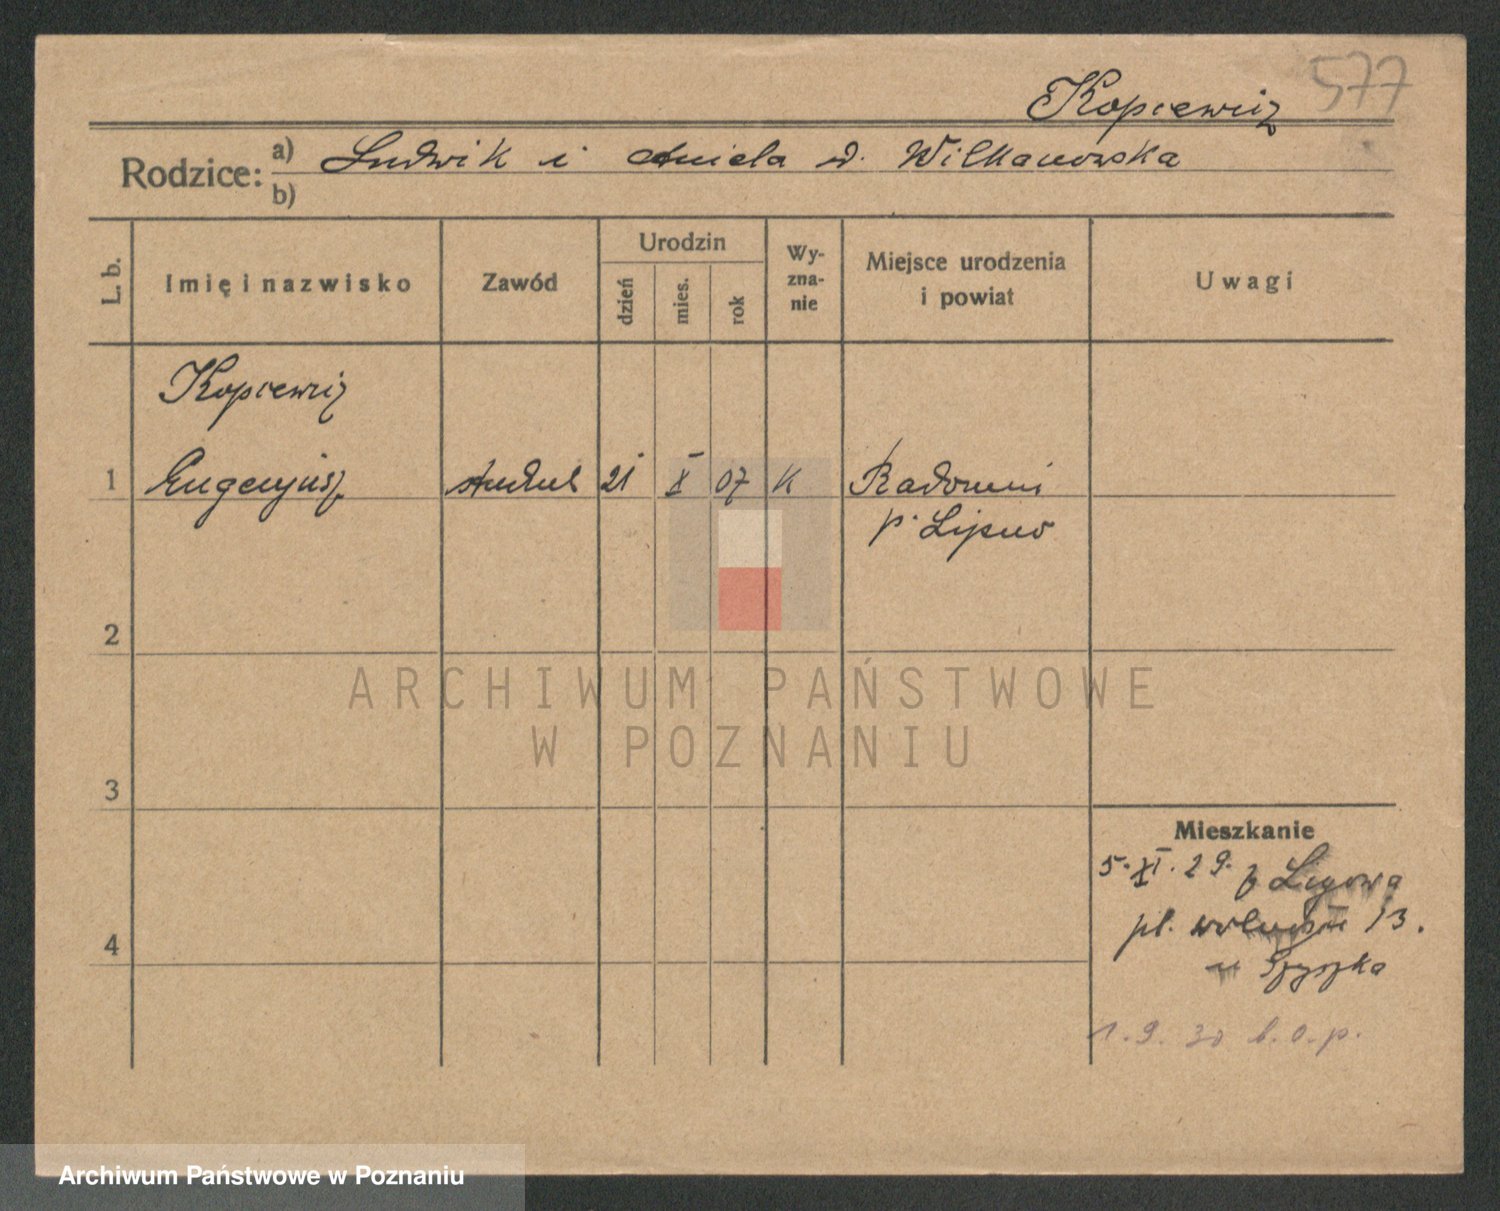 577
Kopcewicz
Rodzice: a) Ludwik i Aniela d. Wilkanowska
b)
L. b.
Imię i nazwisko
Zawód
Urodzin
dzień
mies.
rok
Wy-
zna-
nie
Miejsce urodzenia
i powiat
Uwagi
Kopcewicz
1 Eugenjusz student 21 X 07 K Radomin
p. Lipno
2
3
4
ARCHIWUM PAŃSTWOWE
W POZNANIU
Mieszkanie
5. XI. 29. z Ligowa
pl. 13.
u
1. 9. 30 b. o. p.
Archiwum Państwowe w Poznaniu